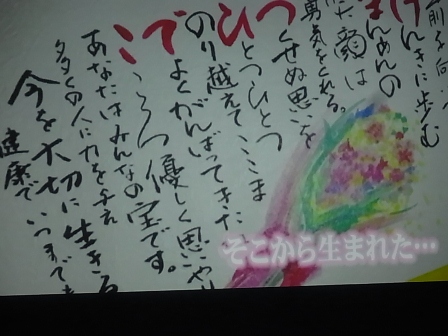 前を向い
げんきに歩む
まんめんの
笑顔は
勇気をくれる。
つくせぬ思いを
ひとつひとつ
のり越えてここま
でよくがんばってきた
こころ優しく思いやり
あなたはみんなの宝です。
多くの人に力を与え
今を大切に生きる
健康でいつまでも
そこから生まれた…